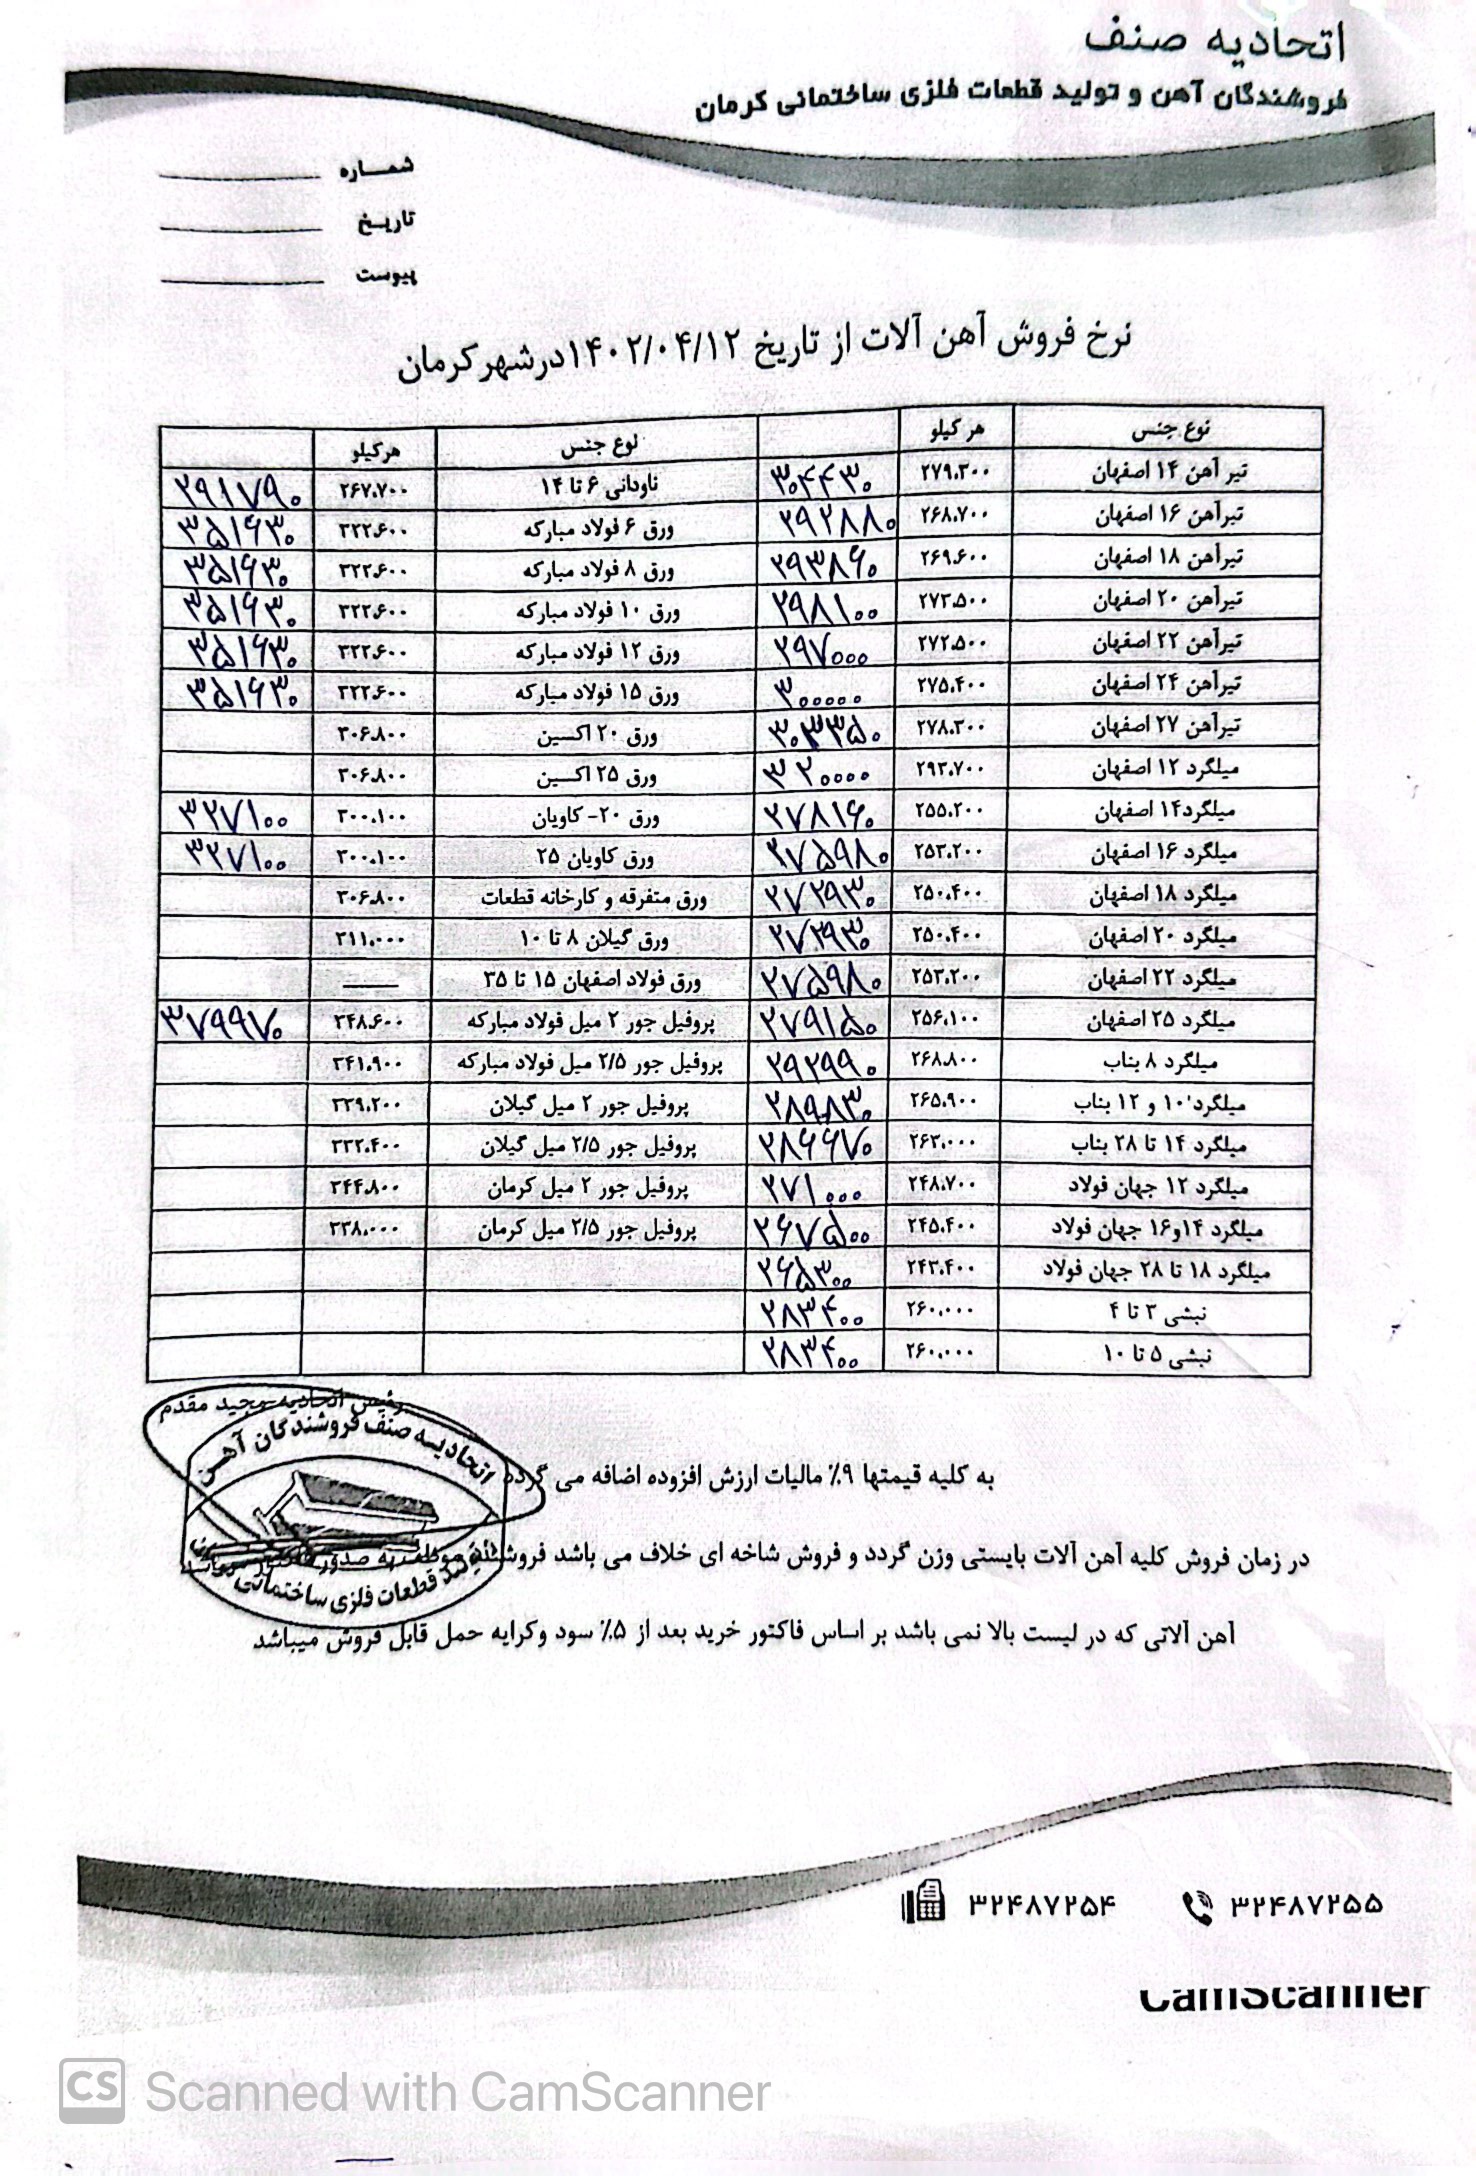 اتحادیه صنف
فروشندگان آهن و تولید قطعات فلزی ساختمانی کرمان
شماره
تاریخ
پیوست
نرخ فروش آهن آلات از تاریخ ۱۴۰۲/۰۴/۱۲درشهرکرمان
نوع جنس هرکیلو نوع جنس هرکیلو
تیر آهن ۱۴ اصفهان ۲۷۹.۳۰۰ ۳۰۴۴۳۰ ناودانی ۶ تا ۱۴ ۲۶۷.۷۰۰ ۲۹۱۷۹۰
تیرآهن ۱۶ اصفهان ۲۶۸.۷۰۰ ۲۹۲۸۸۰ ورق ۶ فولاد مبارکه ۳۲۲.۶۰۰ ۳۵۱۶۳۰
تیرآهن ۱۸ اصفهان ۲۶۹.۶۰۰ ۲۹۳۸۶۰ ورق ۸ فولاد مبارکه ۳۲۲.۶۰۰ ۳۵۱۶۳۰
تیرآهن ۲۰ اصفهان ۲۷۳.۵۰۰ ۲۹۸۱۰۰ ورق ۱۰ فولاد مبارکه ۳۲۲.۶۰۰ ۳۵۱۶۳۰
تیرآهن ۲۲ اصفهان ۲۷۲.۵۰۰ ۲۹۷۰۰۰ ورق ۱۲ فولاد مبارکه ۳۲۲.۶۰۰ ۳۵۱۶۳۰
تیرآهن ۲۴ اصفهان ۲۷۵.۴۰۰ ۳۰۰۰۰۰ ورق ۱۵ فولاد مبارکه ۳۲۲.۶۰۰ ۳۵۱۶۳۰
تیرآهن ۲۷ اصفهان ۲۷۸.۳۰۰ ۳۰۳۳۵۰ ورق ۲۰ اکسین ۳۰۶.۸۰۰
میلگرد ۱۲ اصفهان ۲۹۳.۷۰۰ ۳۲۰۰۰۰ ورق ۲۵ اکسین ۳۰۶.۸۰۰
میلگرد۱۴ اصفهان ۲۵۵.۲۰۰ ۲۷۸۱۶۰ ورق ۲۰- کاویان ۳۰۰.۱۰۰ ۳۲۷۱۰۰
میلگرد ۱۶ اصفهان ۲۵۳.۲۰۰ ۲۷۵۹۸۰ ورق کاویان ۲۵ ۳۰۰.۱۰۰ ۳۲۷۱۰۰
میلگرد ۱۸ اصفهان ۲۵۰.۴۰۰ ۲۷۲۹۳۰ ورق متفرقه و کارخانه قطعات ۳۰۶.۸۰۰
میلگرد ۲۰ اصفهان ۲۵۰.۴۰۰ ۲۷۲۹۳۰ ورق گیلان ۸ تا ۱۰ ۳۱۱.۰۰۰
میلگرد ۲۲ اصفهان ۲۵۳.۲۰۰ ۲۷۵۹۸۰ ورق فولاد اصفهان ۱۵ تا ۳۵ ——
میلگرد ۲۵ اصفهان ۲۵۶.۱۰۰ ۲۷۹۱۵۰ پروفیل جور ۲ میل فولاد مبارکه ۳۴۸.۶۰۰ ۳۷۹۹۷۰
میلگرد ۸ بناب ۲۶۸.۸۰۰ ۲۹۲۹۹۰ پروفیل جور ۲/۵ میل فولاد مبارکه ۳۴۱.۹۰۰
میلگرد ۱۰ و ۱۲ بناب ۲۶۵.۹۰۰ ۲۸۹۸۳۰ پروفیل جور ۲ میل گیلان ۳۳۹.۲۰۰
میلگرد ۱۴ تا ۲۸ بناب ۲۶۳.۰۰۰ ۲۸۶۶۷۰ پروفیل جور ۲/۵ میل گیلان ۳۳۲.۴۰۰
میلگرد ۱۲ جهان فولاد ۲۴۸.۷۰۰ ۲۷۱۰۰۰ پروفیل جور ۲ میل کرمان ۳۴۴.۸۰۰
میلگرد ۱۴و۱۶ جهان فولاد ۲۴۵.۴۰۰ ۲۶۷۵۰۰ پروفیل جور ۲/۵ میل کرمان ۳۳۸.۰۰۰
میلگرد ۱۸ تا ۲۸ جهان فولاد ۲۴۳.۴۰۰ ۲۶۵۳۰۰
نبشی ۳ تا ۴ ۲۶۰.۰۰۰ ۲۸۳۴۰۰
نبشی ۵ تا ۱۰ ۲۶۰.۰۰۰ ۲۸۳۴۰۰
رئیس اتحادیه مجید مقدم
اتحادیه صنف فروشندگان آهن
به کلیه قیمتها ۹٪ مالیات ارزش افزوده اضافه می گردد
در زمان فروش کلیه آهن آلات بایستی وزن گردد و فروش شاخه ای خلاف می باشد فروشنده موظف به صدور
تولید قطعات فلزی ساختمانی
آهن آلاتی که در لیست بالا نمی باشد بر اساس فاکتور خرید بعد از ۵٪ سود وکرایه حمل قابل فروش میباشد
۳۲۴۸۷۲۵۵ ۳۲۴۸۷۲۵۴
CamScanner
CS Scanned with CamScanner